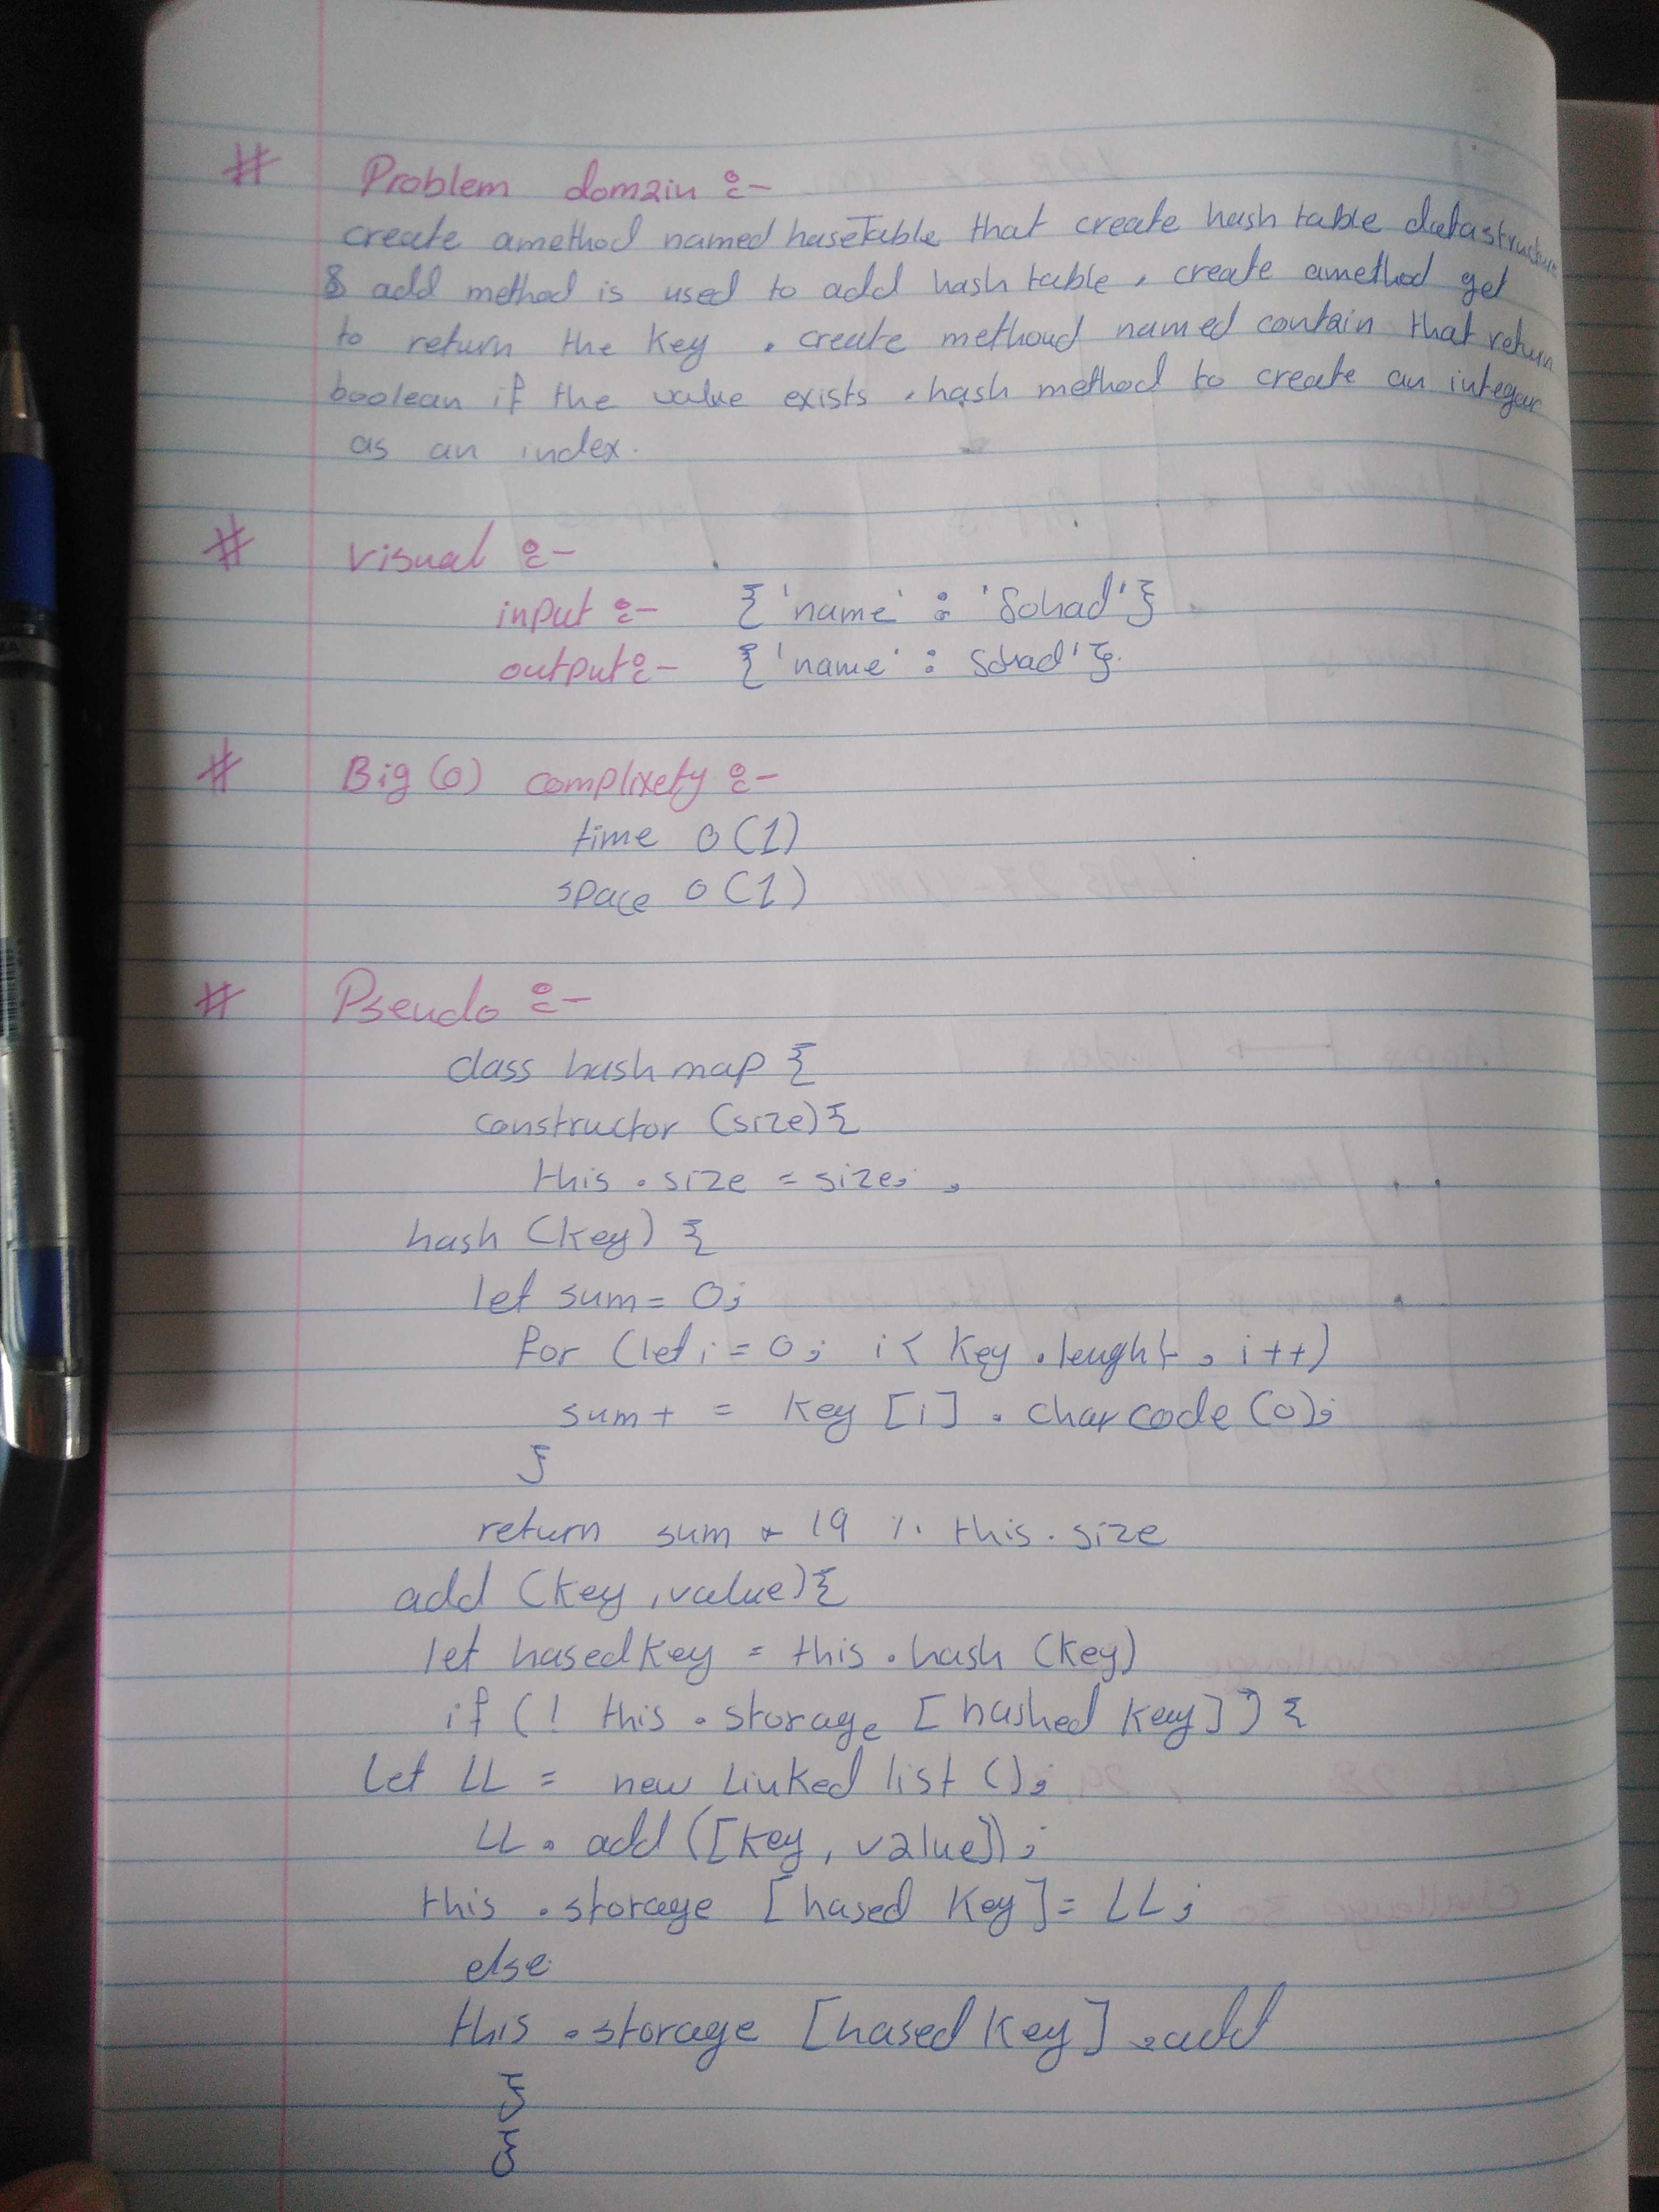 # Problem domain :-
create amethod named haseTable that create hash table datastructure
& add method is used to add hash table, create amethod get
to return the key . create methoud named contain that return
boolean if the value exists , hash method to create an integear
as an index.
# visual :-
input :- {'name' : 'Sohad'}
output :- {'name' : Sohad'}.
# Big (o) complixety :-
time o(1)
space o(1)
# Pseudo :-
class hash map {
constructor (size){
this . size = size; ,
hash (key) {
let sum = 0;
for (let i = 0; i < key . lenght , i++)
sum + = key [i] . charcode (0);
}
return sum * 19 % this . size
add (key , value){
let hasedkey = this . hash (key)
if (! this . storage [hashed key]) {
Let LL = new Linked list ();
LL . add ([key , value]);
this . storage [hased key] = LL;
else
this . storage [hased key] .add
}
}